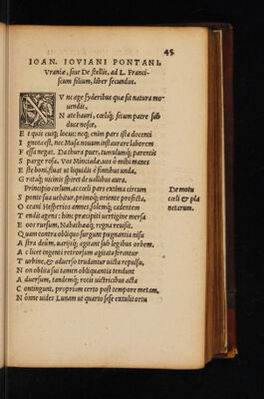 45
IOAN. IOVIANI PONTANI,
Vraniæ, siue De stellis, ad L. Franci-
scum filium, liber secundus.
NVnc age syderibus quæ sit natura mo-
uendis,
Nate hauri, cœliq; situm patre sub
duce nosce,
Et quis cuiq; locus: neq; enim pars ista docenti
Ignota est, nec Musa nouum instaurare laborem
Fessa negat. Da thura puer, tumulumq; parentis
Sparge rosa. Vos Minciadæ, uos ò mihi manes
Este boni, fluat ut liquidis è finibus unda,
Grataq; uicinis spiret de uallibus aura.
Principio cœlum, ac cœli pars extima circum
De motu
Sponte sua uehitur, primoq; oriente profecta,
cœli & pla
Oceani Hesperios amnes, solemq; cadentem
netarum.
Tendit agens: hinc præcipiti uertigine mersa
Eoos rursum, Nabathæaq; regna reuisit.
Quam contra obliquo surgunt pugnantia nisu
Astra deûm, uarijsq; agitant sub legibus orbem.
Ac licet ingenti retrorsum agitata ferantur
Turbine, & aduerso trudantur uicta repulsu,
Non oblita sui tamen obliquantia tendunt
Aduersum, tandemq; uicis uictricibus acta
Contingunt, proprium certo post tempore metam.
Nónne uides Lunam ut quarto sese extulit ortu